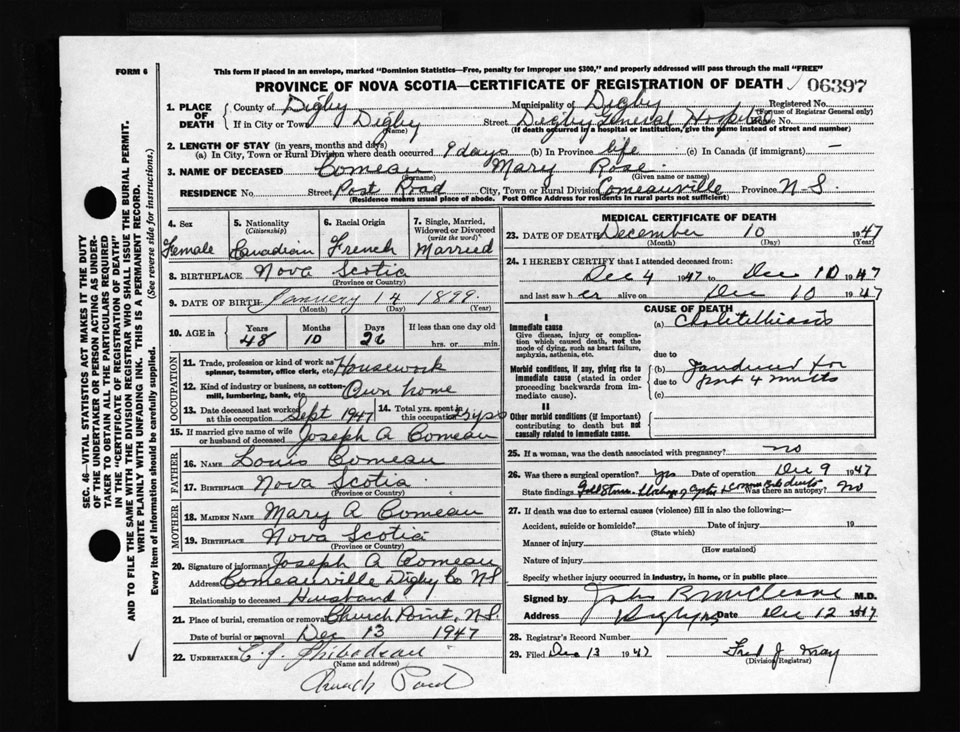 FORM 6
This form if placed in an envelope, marked "Dominion Statistics—Free, penalty for improper use $300," and properly addressed will pass through the mail "FREE"
PROVINCE OF NOVA SCOTIA—CERTIFICATE OF REGISTRATION OF DEATH 06397
1. PLACE OF DEATH County of Digby Municipality of Digby Registered No.
(For use of Registrar General only)
If in City or Town Digby Street Digby General Hospital House No.
(Name) (If death occurred in a hospital or institution, give the name instead of street and number)
2. LENGTH OF STAY (in years, months and days)
(a) In City, Town or Rural Division where death occurred 9 days (b) In Province life (c) In Canada (if immigrant) —
3. NAME OF DECEASED Comeau Mary Rose
(Surname) (Given name or names)
RESIDENCE No Street Post Road City, Town or Rural Division Comeauville Province N.S.
(Residence means usual place of abode. Post Office Address for residents in rural parts not sufficient)
4. Sex 5. Nationality (Citizenship) 6. Racial Origin 7. Single, Married, Widowed or Divorced (write the word)
Female Canadian French Married
8. BIRTHPLACE Nova Scotia
(Province or Country)
9. DATE OF BIRTH January 14 1899
(Month) (Day) (Year)
10. AGE in Years Months Days If less than one day old
48 10 26 hrs. or min.
OCCUPATION
11. Trade, profession or kind of work as spinner, teamster, office clerk, etc. Housework
12. Kind of industry or business, as cotton-mill, lumbering, bank, etc. Own home
13. Date deceased last worked at this occupation Sept 1947 14. Total yrs. spent in this occupation
15. If married give name of wife or husband of deceased Joseph A Comeau
FATHER
16. NAME Louis Comeau
17. BIRTHPLACE Nova Scotia
(Province or Country)
MOTHER
18. MAIDEN NAME Mary A Comeau
19. BIRTHPLACE Nova Scotia
(Province or Country)
20. Signature of informant Joseph A Comeau
Address Comeauville Digby Co N.S
Relationship to deceased Husband
21. Place of burial, cremation or removal Church Point, N.S.
Date of burial or removal Dec 13 1947
22. UNDERTAKER E. J. Thibodeau
(Name and address)
Church Point
MEDICAL CERTIFICATE OF DEATH
23. DATE OF DEATH December 10 1947
(Month) (Day) (Year)
24. I HEREBY CERTIFY that I attended deceased from:
Dec 4 1947 to Dec 10 1947
and last saw her alive on Dec 10 1947
CAUSE OF DEATH
I
Immediate cause (a)
Give disease, injury or complication which caused death, not the mode of dying, such as heart failure, asphyxia, asthenia, etc.
due to
Morbid conditions, if any, giving rise to immediate cause (stated in order proceeding backwards from immediate cause).
(b) Jaundiced for
due to past 4 months
(c)
II
Other morbid conditions (if important) contributing to death but not causally related to immediate cause.
25. If a woman, was the death associated with pregnancy? no
26. Was there a surgical operation? yes Date of operation Dec 9 1947
State findings Gall Stones Was there an autopsy? No
27. If death was due to external causes (violence) fill in also the following:—
Accident, suicide or homicide? Date of injury 19
(State which)
Manner of injury
(How sustained)
Nature of injury
Specify whether injury occurred in industry, in home, or in public place
Signed by John R McCleave M.D.
Address Digby NS Date Dec 12 1947
28. Registrar's Record Number
29. Filed Dec 13 1947 Fred J. May
(Division Registrar)
SEC. 46—VITAL STATISTICS ACT MAKES IT THE DUTY
OF THE UNDERTAKER OR PERSON ACTING AS UNDER-
TAKER TO OBTAIN ALL THE PARTICULARS REQUIRED
IN THE "CERTIFICATE OF REGISTRATION OF DEATH"
AND TO FILE THE SAME WITH THE DIVISION REGISTRAR WHO SHALL ISSUE THE BURIAL PERMIT.
WRITE PLAINLY WITH UNFADING INK. THIS IS A PERMANENT RECORD.
Every item of information should be carefully supplied. (See reverse side for instructions.)